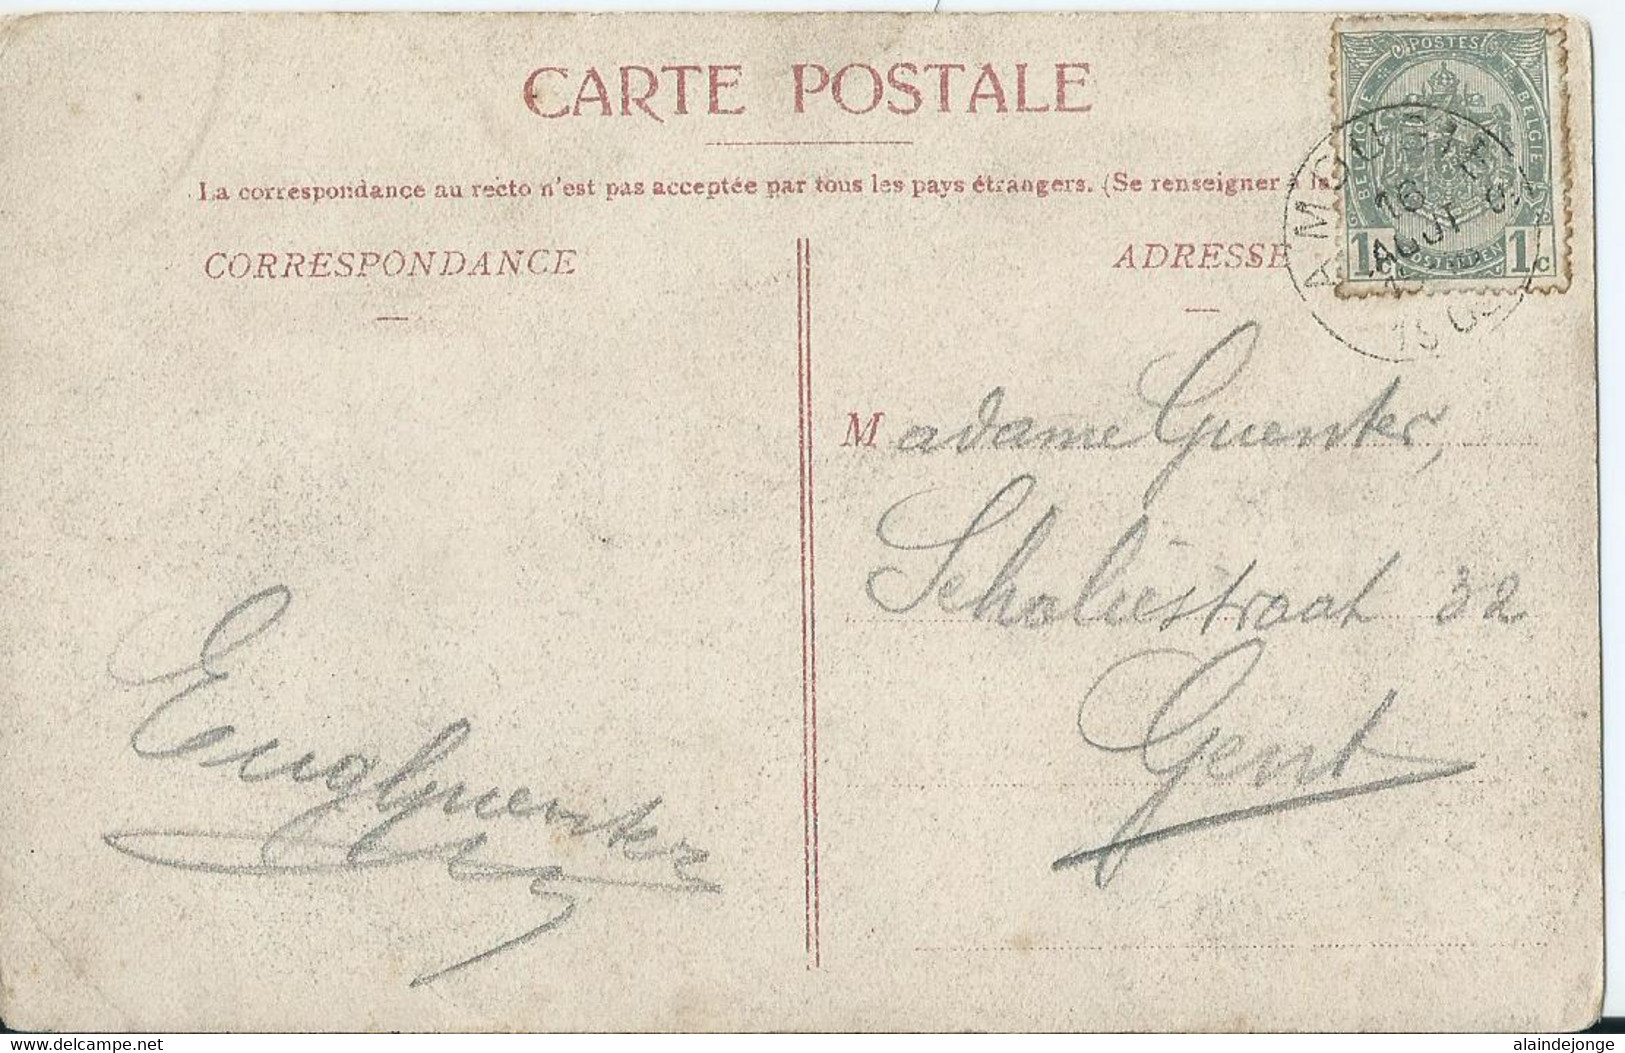 CARTE POSTALE
La correspondance au recto n'est pas acceptée par tous les pays étrangers. (Se renseigner à la
CORRESPONDANCE
ADRESSE
POSTES
BELGIQUE
BELGIE
1c 1c
16
AOUT
Madame Guenter,
Scholiestraat 32
Gent
Eug Guenter
delcampe.net
alaindejonge